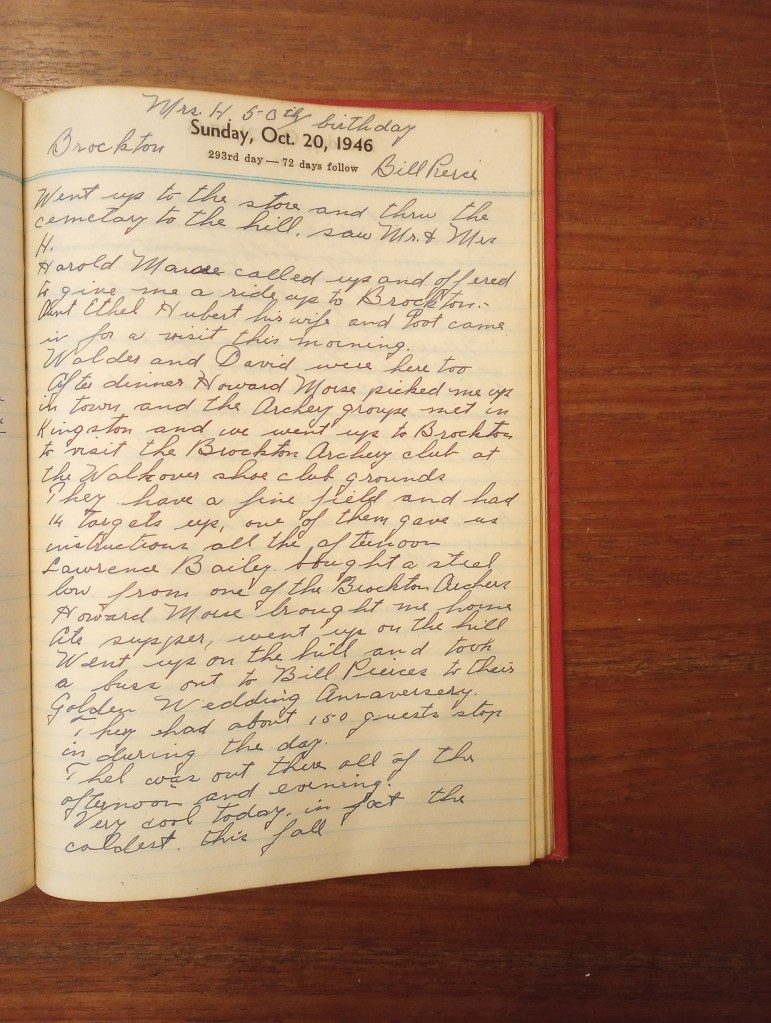 Mrs. H 50th birthday
Sunday, Oct. 20, 1946
Brockton
293rd day — 72 days follow
Bill Pierce
Went up to the store and thru the
cemetary to the hill. saw Mr. & Mrs
H.
Harold called up and offered
to give me a ride up to Brockton.-
Aunt Ethel Hubert his wife and Toot came
in for a visit this morning.
Walder and David were here too
After dinner Howard Morse picked me up
in town and the Archey groupe met in
Kingston and we went up to Brockton
to visit the Brockton Archery club at
the Walkover shoe club grounds
They have a fine field and had
14 targets up, one of them gave us
instructions all the afternoon
Lawrence Baily bought a steel
bow from one of the Brockton Archers
Howard Morse brought me home
Ate supper, went up on the hill
Went up on the hill and took
a buss out to Bill Pierces to their
Golden Wedding Annaversery.
They had about 150 guests stop
in during the day.
Thel was out there all of the
afternoon and evening.
Very cool today, in fact the
coldest. this fall